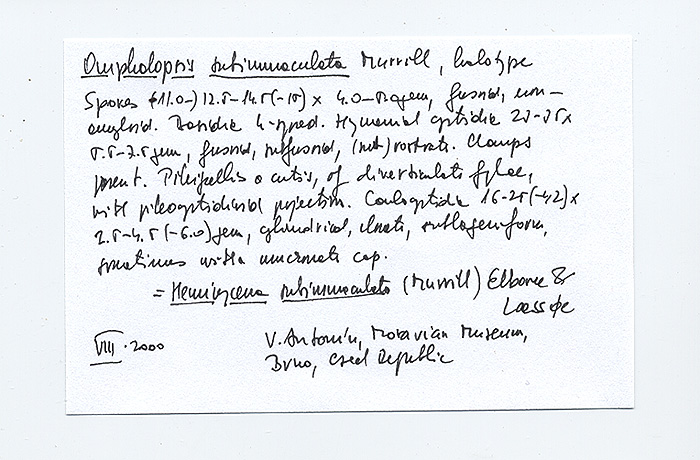 Omphalopsis subimmaculata Murrill, holotype
Spores (11.0-) 12.5-14.5(-15) × 4.0-5.0 µm, fusoid, non-
amyloid. Basidia 4-spored. Hymenial cystidia 23-35 ×
5.5-7.5 µm, fusoid, subfusoid, (sub)rostrate. Clamps
present. Pileipellis a cutis, of diverticulate hyphae,
with pileocystidioid projections. Caulocystidia 16-25(-42) ×
2.5-4.5(-6.0) µm, cylindrical, clavate, sublageniform,
sometimes with a mucronate cap.
= Hemimycena subimmaculata (Murrill) Elborne &
Læssøe
VIII. 2000
V. Antonín, Moravian Museum,
Brno, Czech Republic